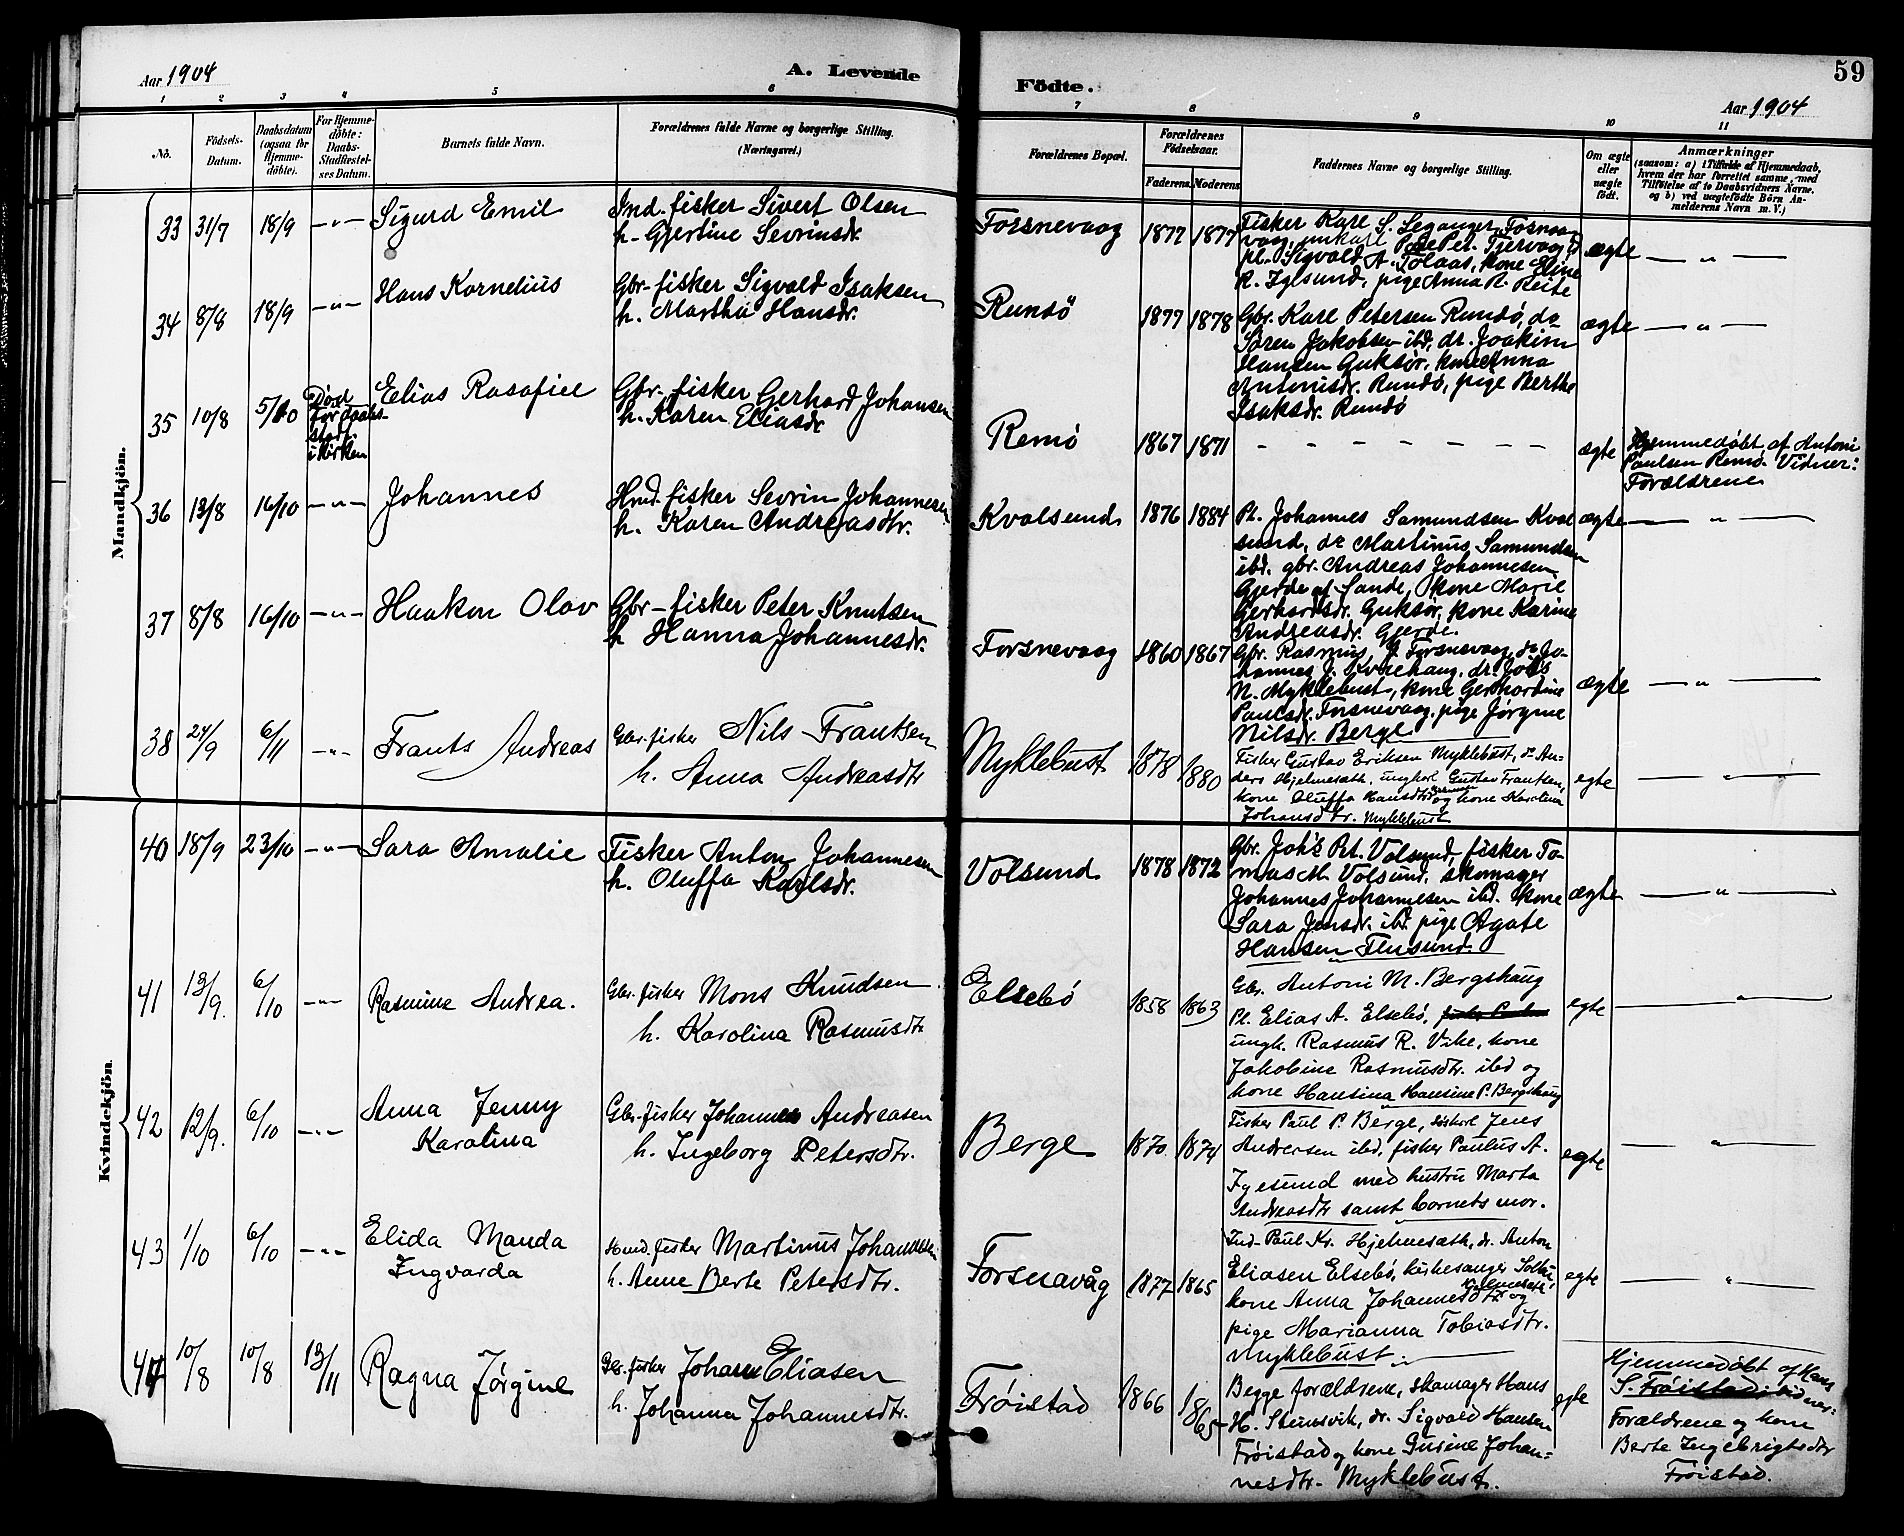 Aar 1904
A. Levende
Födte.
59
Aar 1904
1 2 3 4 5 6 7 8 9 10 11
No.
Födsels-Datum.
Daabsdatum (ogsaa for Hjemme-döbte).
For Hjemme-döbte: Daabs-Stadfæstel-ses Datum.
Barnets fulde Navn.
Forældrenes fulde Navne og borgerlige Stilling.
(Næringsvei.)
Forældrenes Bopæl.
Forældrenes Födselsaar.
Faderens. Moderens.
Faddernes Navne og borgerlig Stilling.
Om ægte eller uægte födt.
Anmærkninger
(saasom: a) i Tilfælde af Hjemmedaab,
hvem der har forrettet samme, med
Tilföielse af to Daabsvidners Navne.
og b) ved uægtefödte Börn An-
melderens Navn m. V.)
Mandkjön.
33 31/7 18/9 -"- Sigurd Emil
Ind. fisker Sivert Olsen
h. Gjertine Sevrinsdr.
Forsnevaag 1877 1877
Fisker Karl S. Leganger, Fosna-
vaag, unkarl Peder Pet. Tjervaag
pl. Sigvald A. Tolaas, kone Eline
R. Igesund, pige Anna R. Reite
ægte — " —
34 8/8 18/9 -"- Hans Kornelius
Gbr-fisker Sigvald Isaksen
h. Martha Hansdr.
Rundö 1877 1878
Gbr. Karl Petersen Rundø, do
Søren Jakobsen ibd, dr. Joakim
Hansen Guksør, kone Anna
Antonisdr. Rundø, pige Berthe
Isaksdr. Rundø
ægte — " —
35 10/8 5/10 Død
før daabs-
stadf.
i kirken
Elias Rasafiel
Gbr. fisker Gerhard Johansen
h. Karen Eliasdr
Remø 1867 1871 - - - - - - - -
ægte
Hjemmedøbt af Antoni
Paulsen Remø. Vidner:
Forældrene
36 13/8 16/10 -"- Johannes
Hmd. fisker Sevrin Johannesen
h. Karen Andreasdtr.
Kvalsund 1876 1884
Pl. Johannes Samundsen Kval
sund, do Martinus Samundsen
ibd. gbr. Andreas Johannesen
Gjerde af Sande, kone Marie
Gerhardsdr. Guksør, kone Karine
Andreasdr. Gjerde.
ægte — " —
37 8/8 16/10 -"- Haakon Olav
Gbr-fisker Peter Knutsen
h Hanna Johannesdr.
Forsnevaag 1860 1867
Gbr. Rasmus J. Forsnevaag, do Jo-
hannes J. Kvælhaug, dr. Joels
N. Myklebust, kone Gerhardine
Paulsdr. Forsnevaag, pige Jørgine
Nilsdr. Berge
ægte — " —
38 24/9 6/11 -"- Frants Andreas
Gbr. fisker Nils Frantsen
h. Anna Andreasdtr
Myklebust 1878 1880
Fisker Gustav Eriksen Myklebust, do An-
ders Hjelmesæth, ungkarl Gustav Frantsen,
kone Oluffa Hansdtr og kone Karolina
Johansdtr. Myklebust
egte — " —
Kvindekjön.
40 18/9 23/10 -"- Sara Amalie
Fisker Anton Johannesen
h. Oluffa Karlsdr.
Volsund 1878 1872
Gbr. Joh's Pet. Volsund, fisker To-
mas M. Volsund, skomager
Johannes Johannesen ibd. kone
Sara Jensdr. ibd. pige Agate
Hansen Flusund.
ægte — " —
41 13/9. 6/10 -"- Rasmine Andrea.
Gbr. fisker Mons Knudsen
h. Karolina Rasmusdtr
Elsebö 1858 1863
Gbr. Antoni M. Bergshaug
Pl. Elias A. Elsebö,
ungk. Rasmus R. Vike, kone
Jakobine Rasmusdtr. ibd og
kone Hansina Hansine P. Bergshaug
egte — " —
42 12/9. 6/10 -"- Anna Jenny
Karolina
Gbr. fisker Johannes Andreasen
h. Ingeborg Petersdtr.
Berge 1870 1874
Fisker Paul P. Berge, Jens
Andersen ibd, fisker Paulus A.
Igesund med hustru Marta
Andreasdtr samt barnets mor.
egte — " —
43 1/10 6/10 -"- Elida Manda
Ingvarda
Hmd. fisker Martinus Johannesen
h. Anne Berte Petersdtr.
Forsnavåg 1877 1865
Ind- Paul Kr. Hjelmesæth, dr. Anton
Eliasen Elsebö, kirkesanger
Hjelmesæth
kone Anna Johannesdtr og
pige Marianna Tobiasdtr.
Myklebust
egte — " —
44 10/8 10/8 13/11 Ragna Jørgine
Gbr. fisker Johan Eliasen
h. Johanna Johannesdtr.
Frøistad 1866 1865
Begge forældrene, skomager Hans
H. Stensvik, dr. Sigvald Hansen
Frøistad og kone Gurine Johan-
nesdtr. Myklebust.
egte
Hjemmedøbt af Hans
S. Frøistad vidner:
Forældrene og kone
Berte Ingebrigtsdtr
Frøistad.